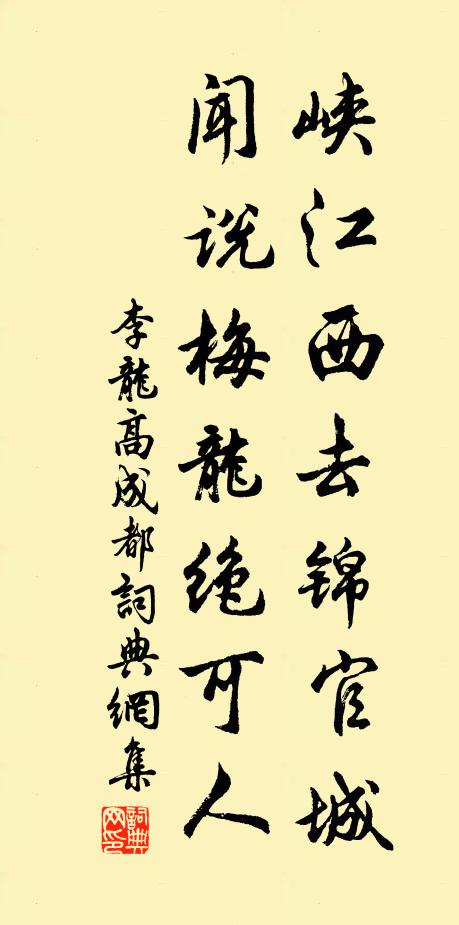 峡江西去锦官城
闻说梅龍绝可人
李龍高成都詞典網集
詞典网印